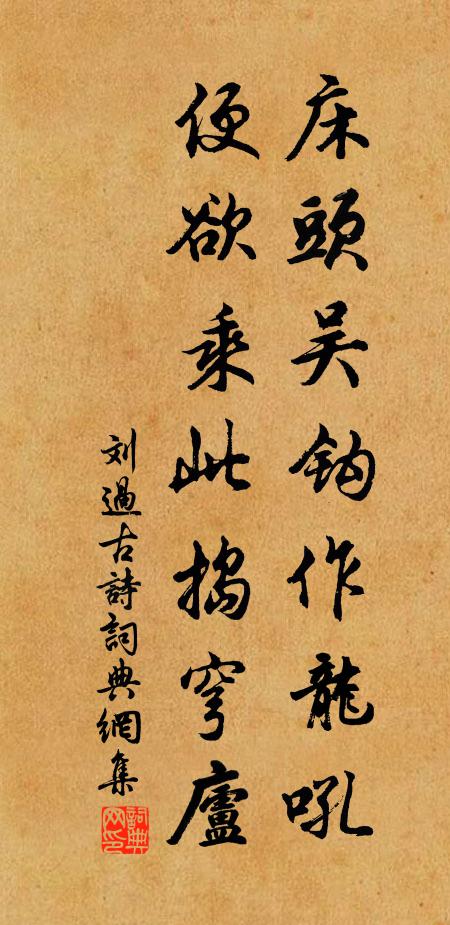 床頭吴鈎作龍吼
便欲乘此搗穹廬
刘過古詩詞典網集
詞典网印